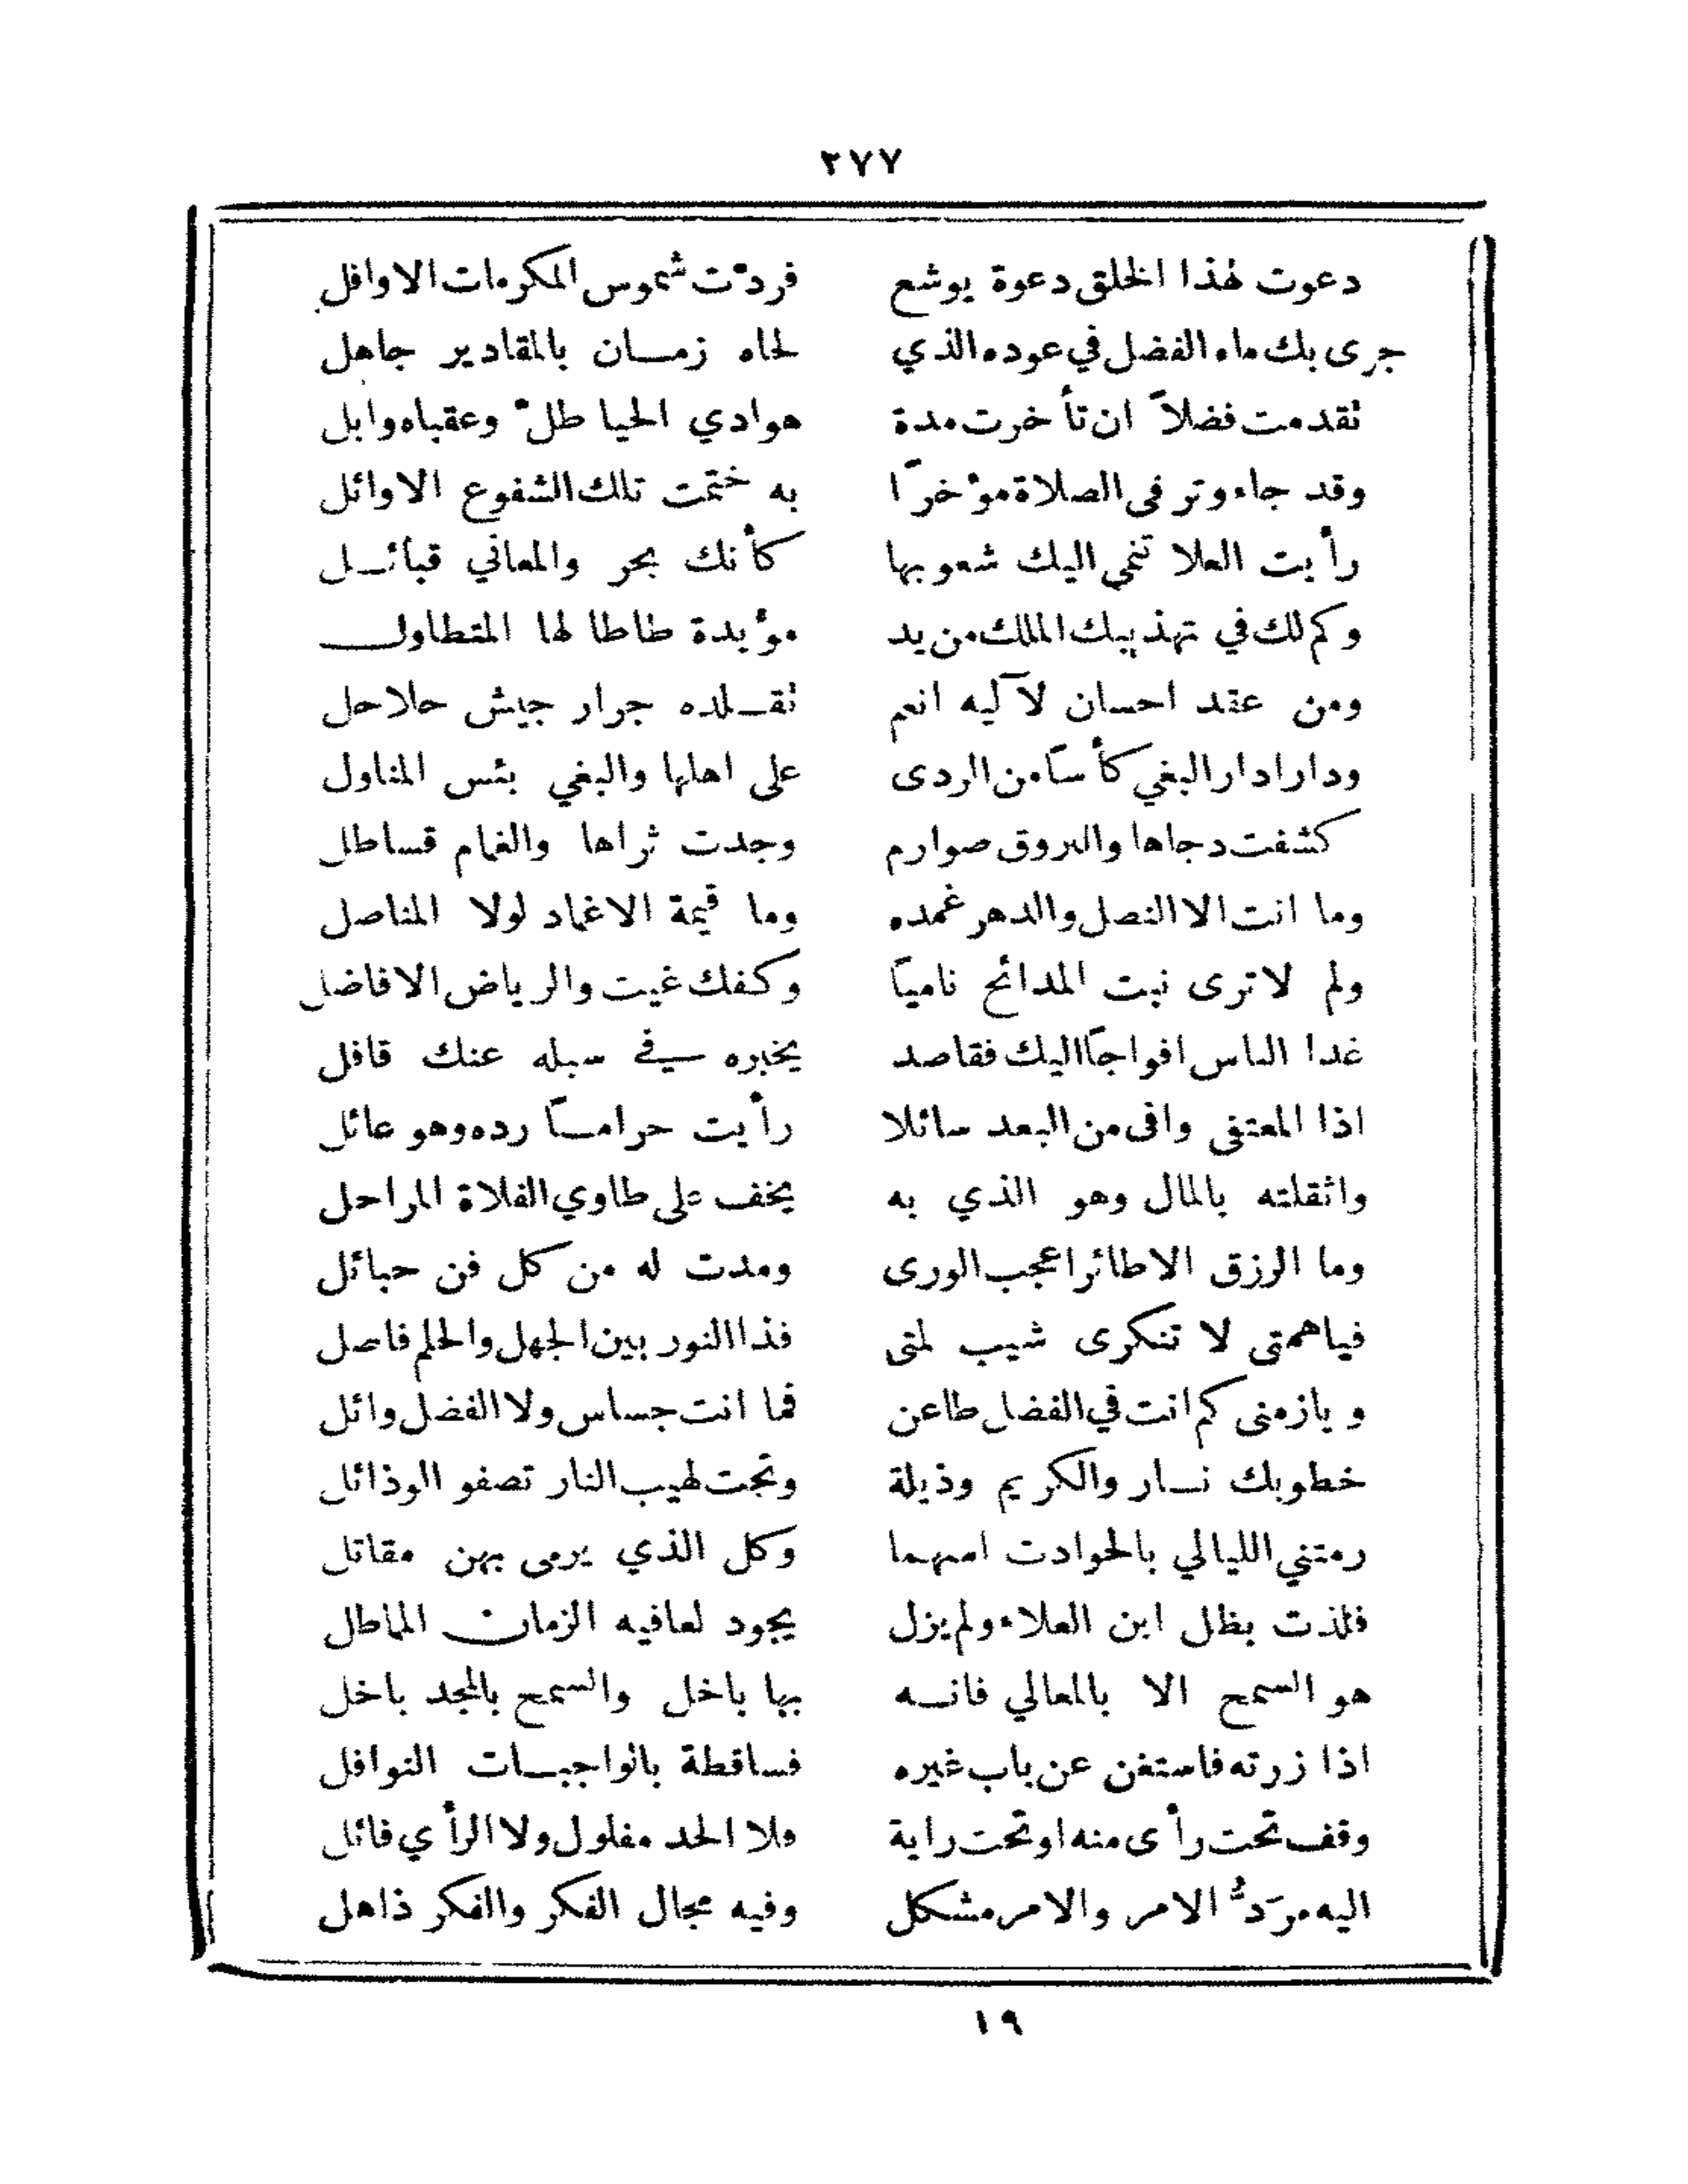 ٢٧٧
دعوت لهذا الخلق دعوة يوشع فردّت شموس المكرمات الاوافل
جرى بك ماء الفضل في عوده الذي لحاه زمـــان بالمقادير جاهل
تقدمت فضلاً ان تأخرت مدة هوادي الحيا طلّ وعقباه وابل
وقد جاء وتر فى الصلاة مؤخرًا به ختمت تلك الشفوع الاوائل
رأيت العلا تنمي اليك شعوبها كأنك بحر والمعاني قبائــل
وكم لك في تهذيبك الملك من يد مؤيدة طاطا لها المتطاول
ومن عقد احسان لآليه انعم تقــلده جرار جيش حلاحل
ودارا دار البغي كأسًا من الردى على اهلها والبغي بئس المناول
كشفت دجاها والبروق صوارم وجدت ثراها والغمام قساطل
وما انت الا النصل والدهر غمده وما قيمة الاغماد لولا المناصل
ولم لا ترى نبت المدائح ناميًا وكفك غيت والرياض الافاضل
غدا الناس افواجًا اليك فقاصد يخبره في سبله عنك قافل
اذا المعتفى وافى من البعد سائلا رأيت حرامــًا رده وهو عائل
واثقلته بالمال وهو الذي به يخف على طاوي الفلاة المراحل
وما الرزق الا طائر اعجب الورى ومدت له من كل فن حبائل
فياهمتى لا تنكرى شيب لمتى فذا النور بين الجهل والحلم فاصل
ويازمنى كم انت في الفضل طاعن فما انت جساس ولا الفضل وائل
خطوبك نــار والكريم وذيلة وتحت لهيب النار تصفو الوذائل
رمتني الليالي بالحوادت اسهما وكل الذي يرمى بهن مقاتل
فلذت بظل ابن العلاء ولم يزل يجود لعافيه الزمان المماطل
هو السمح الا بالمعالي فانــه بها باخل والسمح بالمجد باخل
اذا زرته فاستغن عن باب غيره فساقطة بالواجبــات النوافل
وقف تحت رأى منه او تحت راية فلا الحد مفلول ولا الرأي فائل
اليه مرَدُّ الامر والامر مشكل وفيه مجال الفكر والفكر ذاهل
١٩